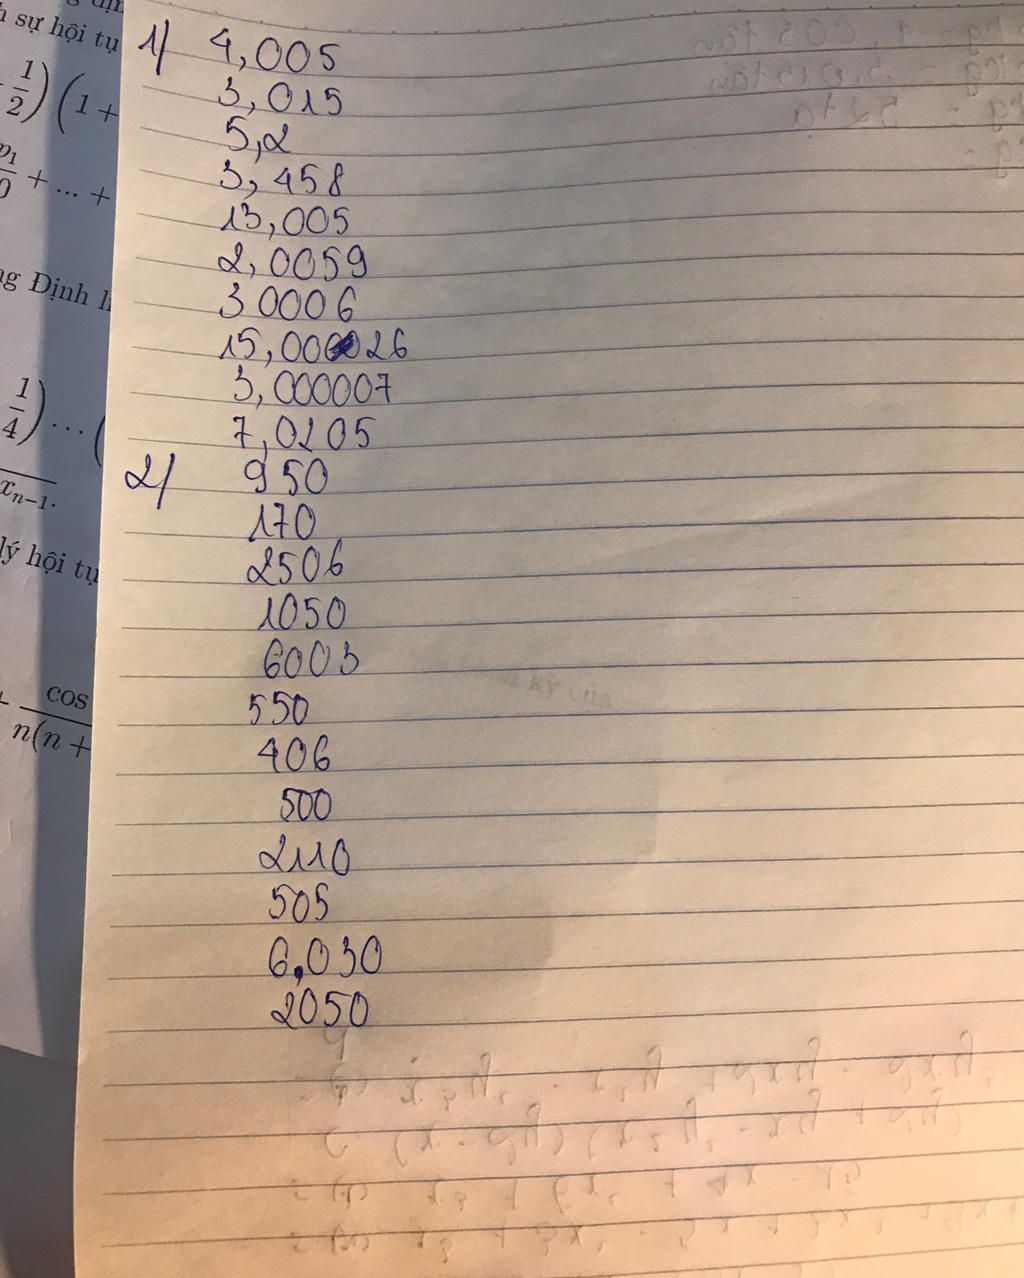 h sự hội tụ
1/2)(1+
+ ... +
ng Định l
1/4)...(
x_{n-1}.
lý hội tụ
cos
n(n+
1) 4,005
3,015
5,2
3,458
13,005
2,0059
30006
15,000026
3,000007
7,0205
2) 950
170
2506
1050
6003
550
406
500
2110
505
6,030
2050